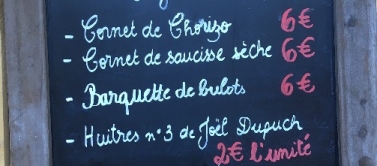 - Cornet de Chorizo 6€
- Cornet de saucisse sèche 6€
- Barquette de bulots 6€
- Huîtres n°3 de Joël Dupuch
2€ l'unité